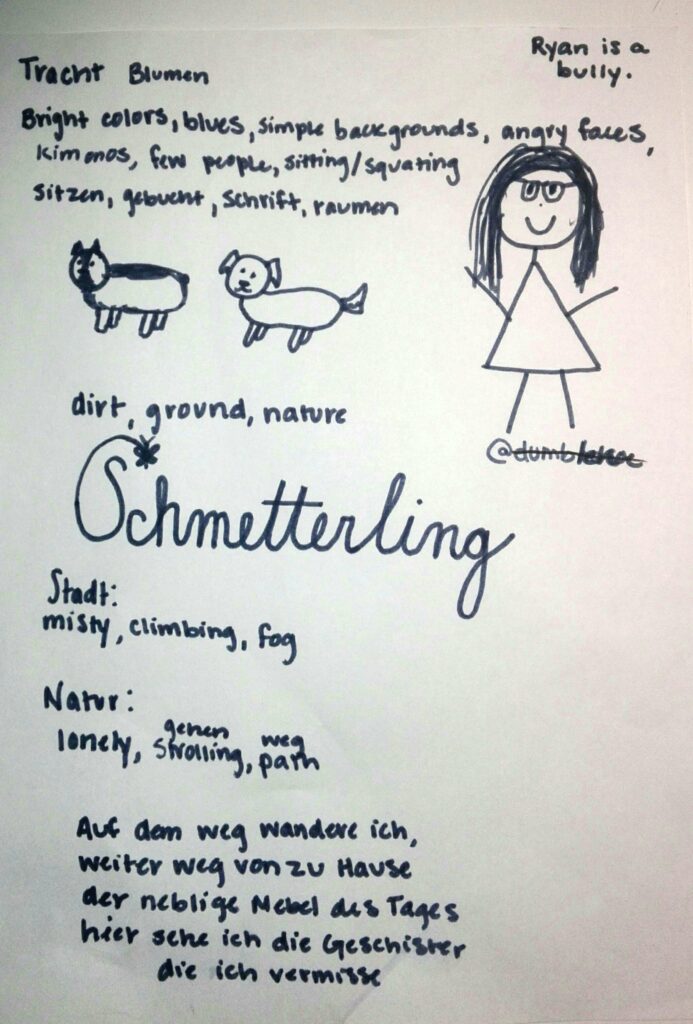 Ryan is a
bully.
Tracht Blumen
Bright colors, blues, simple backgrounds, angry faces,
kimonos, few people, sitting/squating
sitzen, gebucht, schrift, raumen
dirt, ground, nature
Schmetterling
Stadt:
misty, climbing, fog
Natur:
gehen weg
lonely, strolling, path
Auf dem weg wandere ich,
weiter weg von zu Hause
der neblige Nebel des Tages
hier sehe ich die Geschister
die ich vermisse